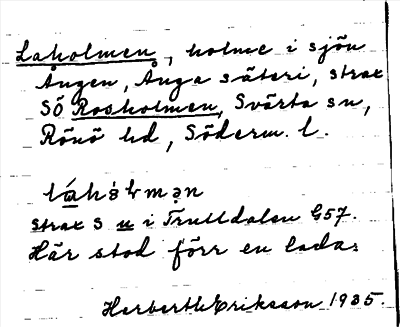 Laholmen, holme i sjön
Ången, Ånga säteri, strax
SÖ Rosholmen, Svärta sn,
Rönö hd, Söderm. l.
strax S u i Trulldalen G57.
Här stod förr en lada.
Herbert Eriksson 1935.